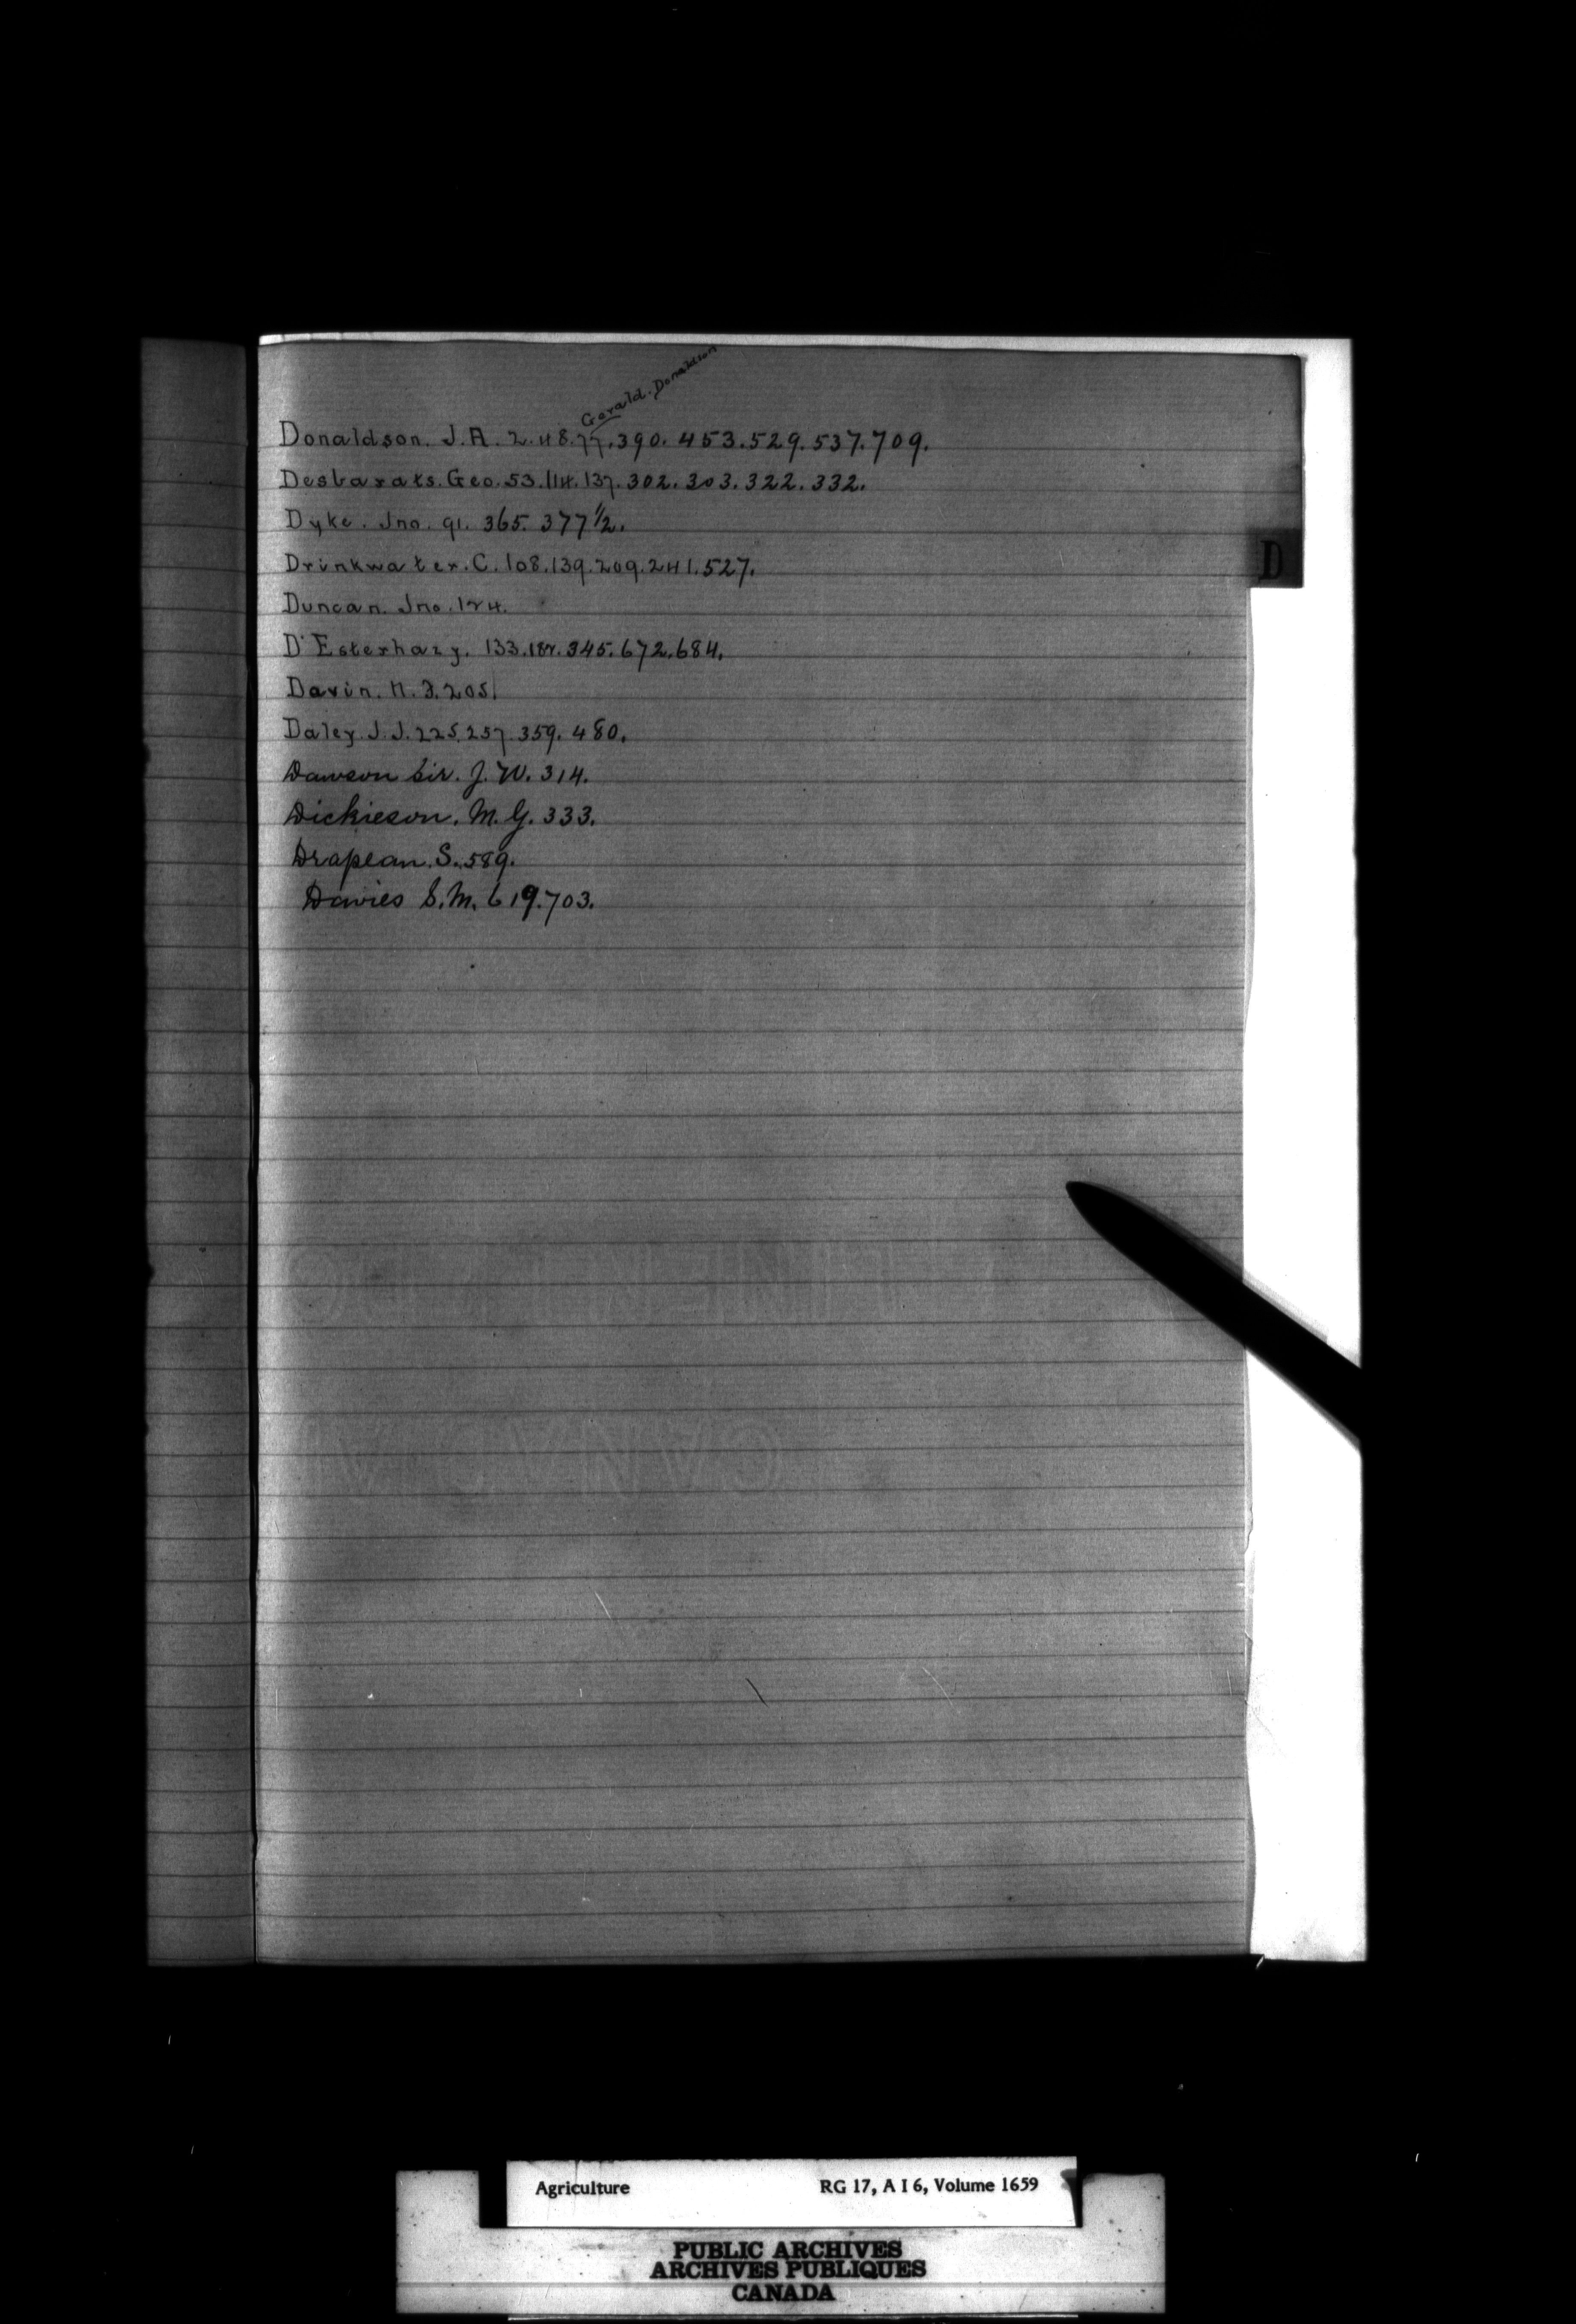 Gerald. Donaldson
Donaldson. J. A. 2. 48. 77. 390. 453. 529. 537. 709.
Desbarats. Geo. 53. 114. 137. 302. 303. 322. 332.
Dyke. Jno. 91. 365. 377 1/2.
Drinkwater. C. 108. 139. 209. 241. 527.
Duncan. Jno. 124.
D'Esterhazy. 133. 182. 345. 672. 684.
Davin. N. F. 205.
Daley. J. J. 225. 257. 359. 480.
Dawson Sir. J. W. 314.
Dickieson. M. G. 333.
Drapeau. S. 589.
Davies S. M. 619. 703.
D
Agriculture RG 17, A I 6, Volume 1659
PUBLIC ARCHIVES
ARCHIVES PUBLIQUES
CANADA